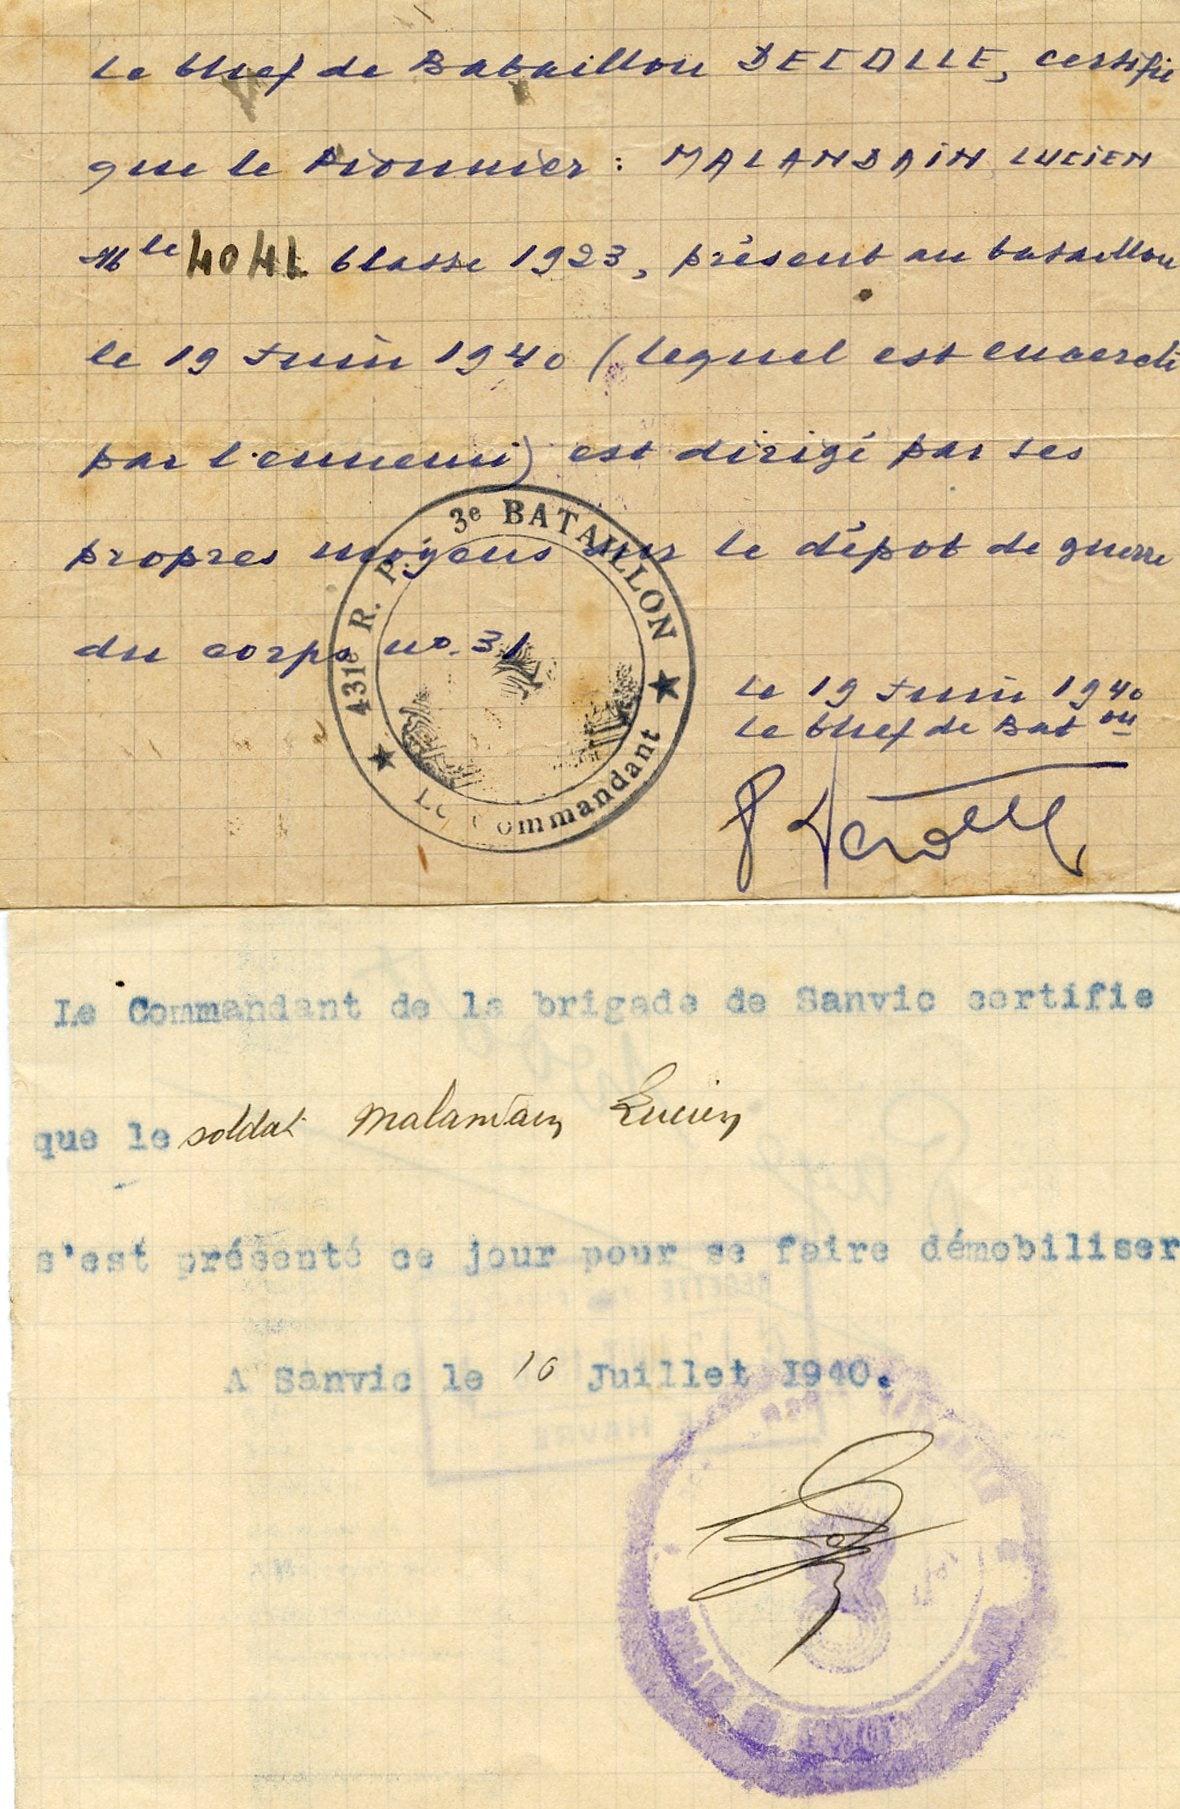 Le Chef de Bataillon DECOLLE, certifie
que le Pionnier : MALANDAIN LUCIEN
Mle 4041 Classe 1923, présent au bataillon
le 19 Juin 1940 (lequel est encerclé
par l'ennemi) est dirigé par ses
propres moyens sur le dépot de guerre
du corps no. 31
431e R. P. 3e BATAILLON
Le Commandant
le 19 Juin 1940
Le Chef de Bat on
Le Commandant de la brigade de Sanvic certifie
que le soldat Malandain Lucien
s'est présenté ce jour pour se faire démobiliser
A Sanvic le 10 Juillet 1940.
LE HAVRE